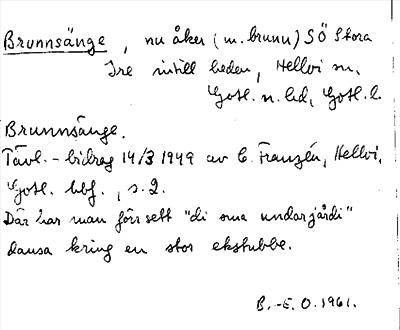 Brunnsänge, nu åker (m. brunn) SÖ Stora
Ire intill heden, Hellvi sn,
Gotl. n. hd, Gotl. l.
Brunnsänge.
Tävl.-bidrag 14/3 1949 av C. Franzén, Hellvi,
Gotl. bbf., s. 2.
Där har man förr sett "di sma undarjårdi"
dansa kring en stor ekstubbe.
B.-E. O. 1961.